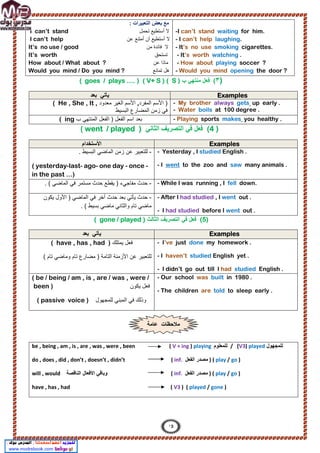 مع بعض التعبيرات :
I can't stand لا أستطيع تحمل
-I can't stand waiting for him.
I can't help لا أستطيع أن أمتنع عن
- I can't help laughing.
It's no use / good لا فائدة من
- It's no use smoking cigarettes.
It's worth تستحق
- It's worth watching .
How about / What about ? ماذا عن
- How about playing soccer ?
Would you mind / Do you mind ? هل تمانع
- Would you mind opening the door ?
(٣) فعل منتهي ب ( S ) ( V+ S ) ( goes / plays .... )
يأتي بعد
Examples
( الأسم المفرد, الأسم الغير معدود , He , She , It )
في زمن المضارع البسيط
- My brother always gets up early .
- Water boils at 100 degree .
بعد اسم الفعل ( الفعل المنتهي ب ing )
- Playing sports makes you healthy .
( 4 ) فعل في التصريف الثاني ( went / played )
الأستخدام
Examples
- للتعبير عن زمن الماضي البسيط .
(yesterday-last- ago- one day - once - in the past ...)
- Yesterday , I studied English .
- I went to the zoo and saw many animals .
- حدث مفاجيء ( يقطع حدث مستمر في الماضي ) .
- While I was running , I fell down.
- حدث يأتي بعد حدث آخر في الماضي ( الأول يكون ماضي تام والثاني ماضي بسيط ) .
- After I had studied , I went out .
- I had studied before I went out .
(5) فعل في التصريف الثالث ( gone / played )
يأتي بعد
Examples
فعل يمتلك ( have , has , had )
للتعبير عن الأزمنة التامة ( مضارع تام وماضي تام )
- I've just done my homework .
- I haven't studied English yet .
- I didn't go out till I had studied English .
( be / being / am , is , are / was , were / been ) فعل يكون
وذلك في المبني للمجهول ( passive voice )
- Our school was built in 1980 .
- The children are told to sleep early .
ملاحظات عامة
be , being , am , is , are , was , were , been
( V + ing ) playing للمعلوم / (V3) played للمجهول
do , does , did , don't , doesn't , didn't
( inf. مصدر الفعل ) ( play / go )
will , would وباقي الأفعال الناقصة
( inf. مصدر الفعل ) ( play / go )
have , has , had
( V3 ) ( played / gone )
www.modrsbook.com